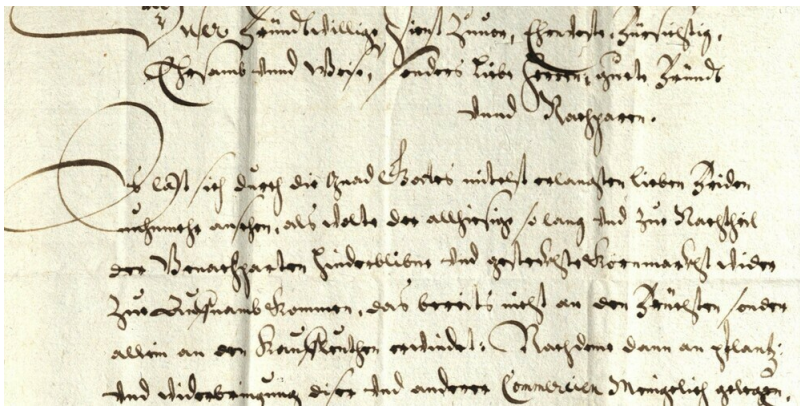 Unser Freündtwillige Dienst Zuuor, Ehrnveste, Fürsichtig,
Ehrsamb vnnd Weise, sonders liebe Herren, guete Fründt
vnnd Nachparen.
Es last sich durch die Gnad Gottes mitelst erlangten lieben Friden
nuhnmehr ansehen, als wolte der allhiesige so lang vnd zue Nachtheil
der Benachparten hinderblibne vnd gesteckhte Kornmarckht wider
Zue Aufnamb Kommen, das bereits nicht an den Früchten sonder
allein an den Kauffleuthen erwindet: Nachdeme dann an pflantz:
vnd widerbringung diser vnd anderer Commercien Menigelich gelegen,